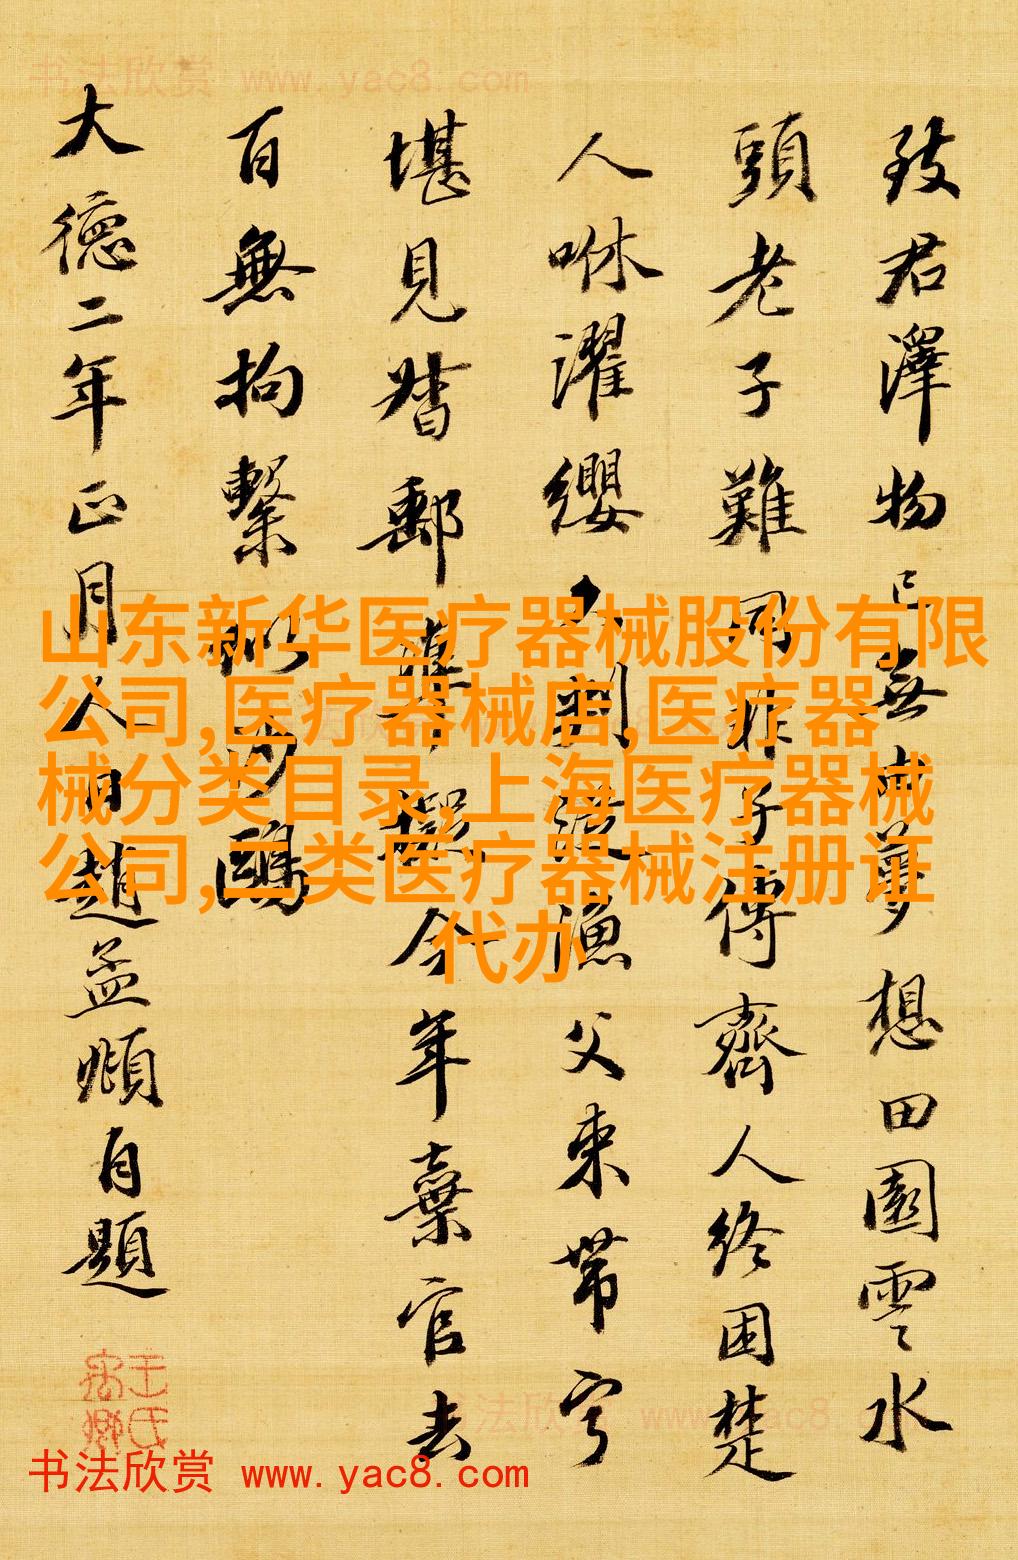 书法欣赏 www.yac8.com
致君澤物已無夢想田園雲水
頭老子難同非子傳齊人終困楚
人咻濯纓久判從漁父束帶寧
堪見督郵準擬今年棄官去
百無拘繫似沙鷗
大德二年正月人日趙孟頫自題
山东新华医疗器械股份有限
公司,医疗器械店,医疗器
械分类目录,上海医疗器械
公司,二类医疗器械注册证
代办
书法欣赏 www.yac8.com
书法欣赏 www.yac8.com